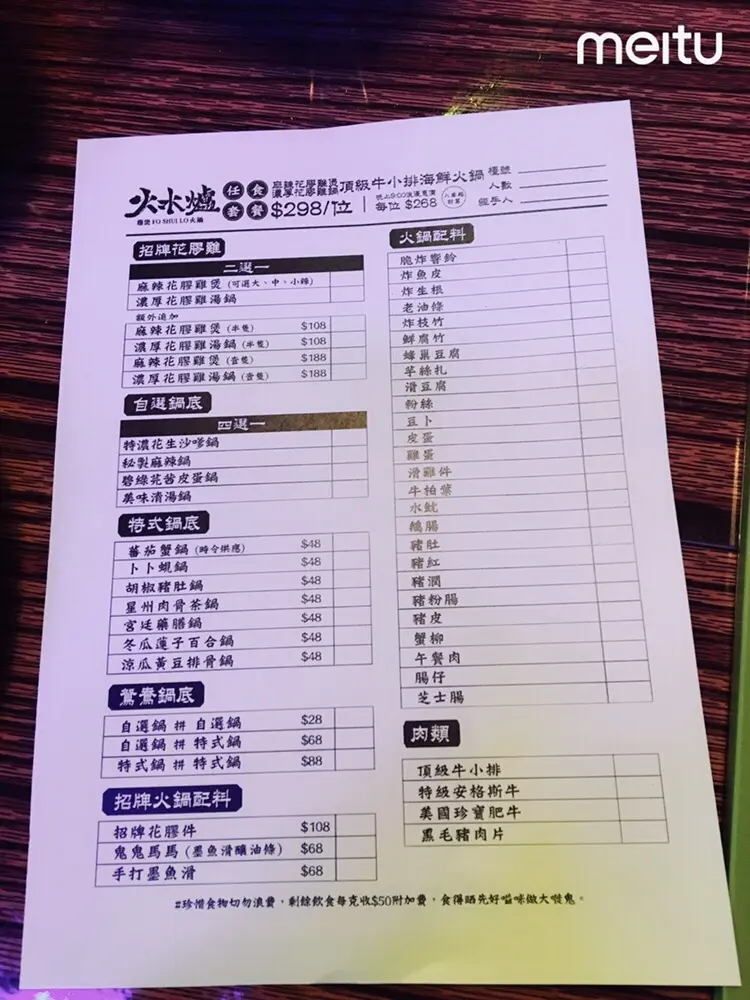 meitu
火水爐
雞煲FO SHUI LO火鍋
任食套餐
麻辣花膠雞煲
濃厚花膠雞鍋
頂級牛小排海鮮火鍋
$298/位
每位 $268
檯號
人數
經手人
招牌花膠雞
二選一
麻辣花膠雞煲 (可選大、中、小辣)
濃厚花膠雞湯鍋
額外追加
麻辣花膠雞煲 (半隻) $108
濃厚花膠雞湯鍋 (半隻) $108
麻辣花膠雞煲 (壹隻) $188
濃厚花膠雞湯鍋 (壹隻) $188
自選鍋底
四選一
特濃花生沙嗲鍋
秘製麻辣鍋
碧綠芫茜皮蛋鍋
美味清湯鍋
特式鍋底
蕃茄蟹鍋 (時令供應) $48
卜卜蜆鍋 $48
胡椒豬肚鍋 $48
星州肉骨茶鍋 $48
宮廷藥膳鍋 $48
冬瓜蓮子百合鍋 $48
涼瓜黃豆排骨鍋 $48
鴛鴦鍋底
自選鍋 拼 自選鍋 $28
自選鍋 拼 特式鍋 $68
特式鍋 拼 特式鍋 $88
招牌火鍋配料
招牌花膠件 $108
鬼鬼馬馬 (墨魚滑釀油條) $68
手打墨魚滑 $68
火鍋配料
脆炸響鈴
炸魚皮
炸生根
老油條
炸枝竹
鮮腐竹
蜂巢豆腐
芋絲扎
滑豆腐
粉絲
豆卜
皮蛋
雞蛋
滑雞件
牛柏葉
水魷
鴨腸
豬肚
豬紅
豬潤
豬粉腸
豬皮
蟹柳
午餐肉
腸仔
芝士腸
肉類
頂級牛小排
特級安格斯牛
美國珍寶肥牛
黑毛豬肉片
#珍惜食物切勿浪費，剩餘飲食每克收$50附加費，食得晒先好嗌咪做大嘥鬼。